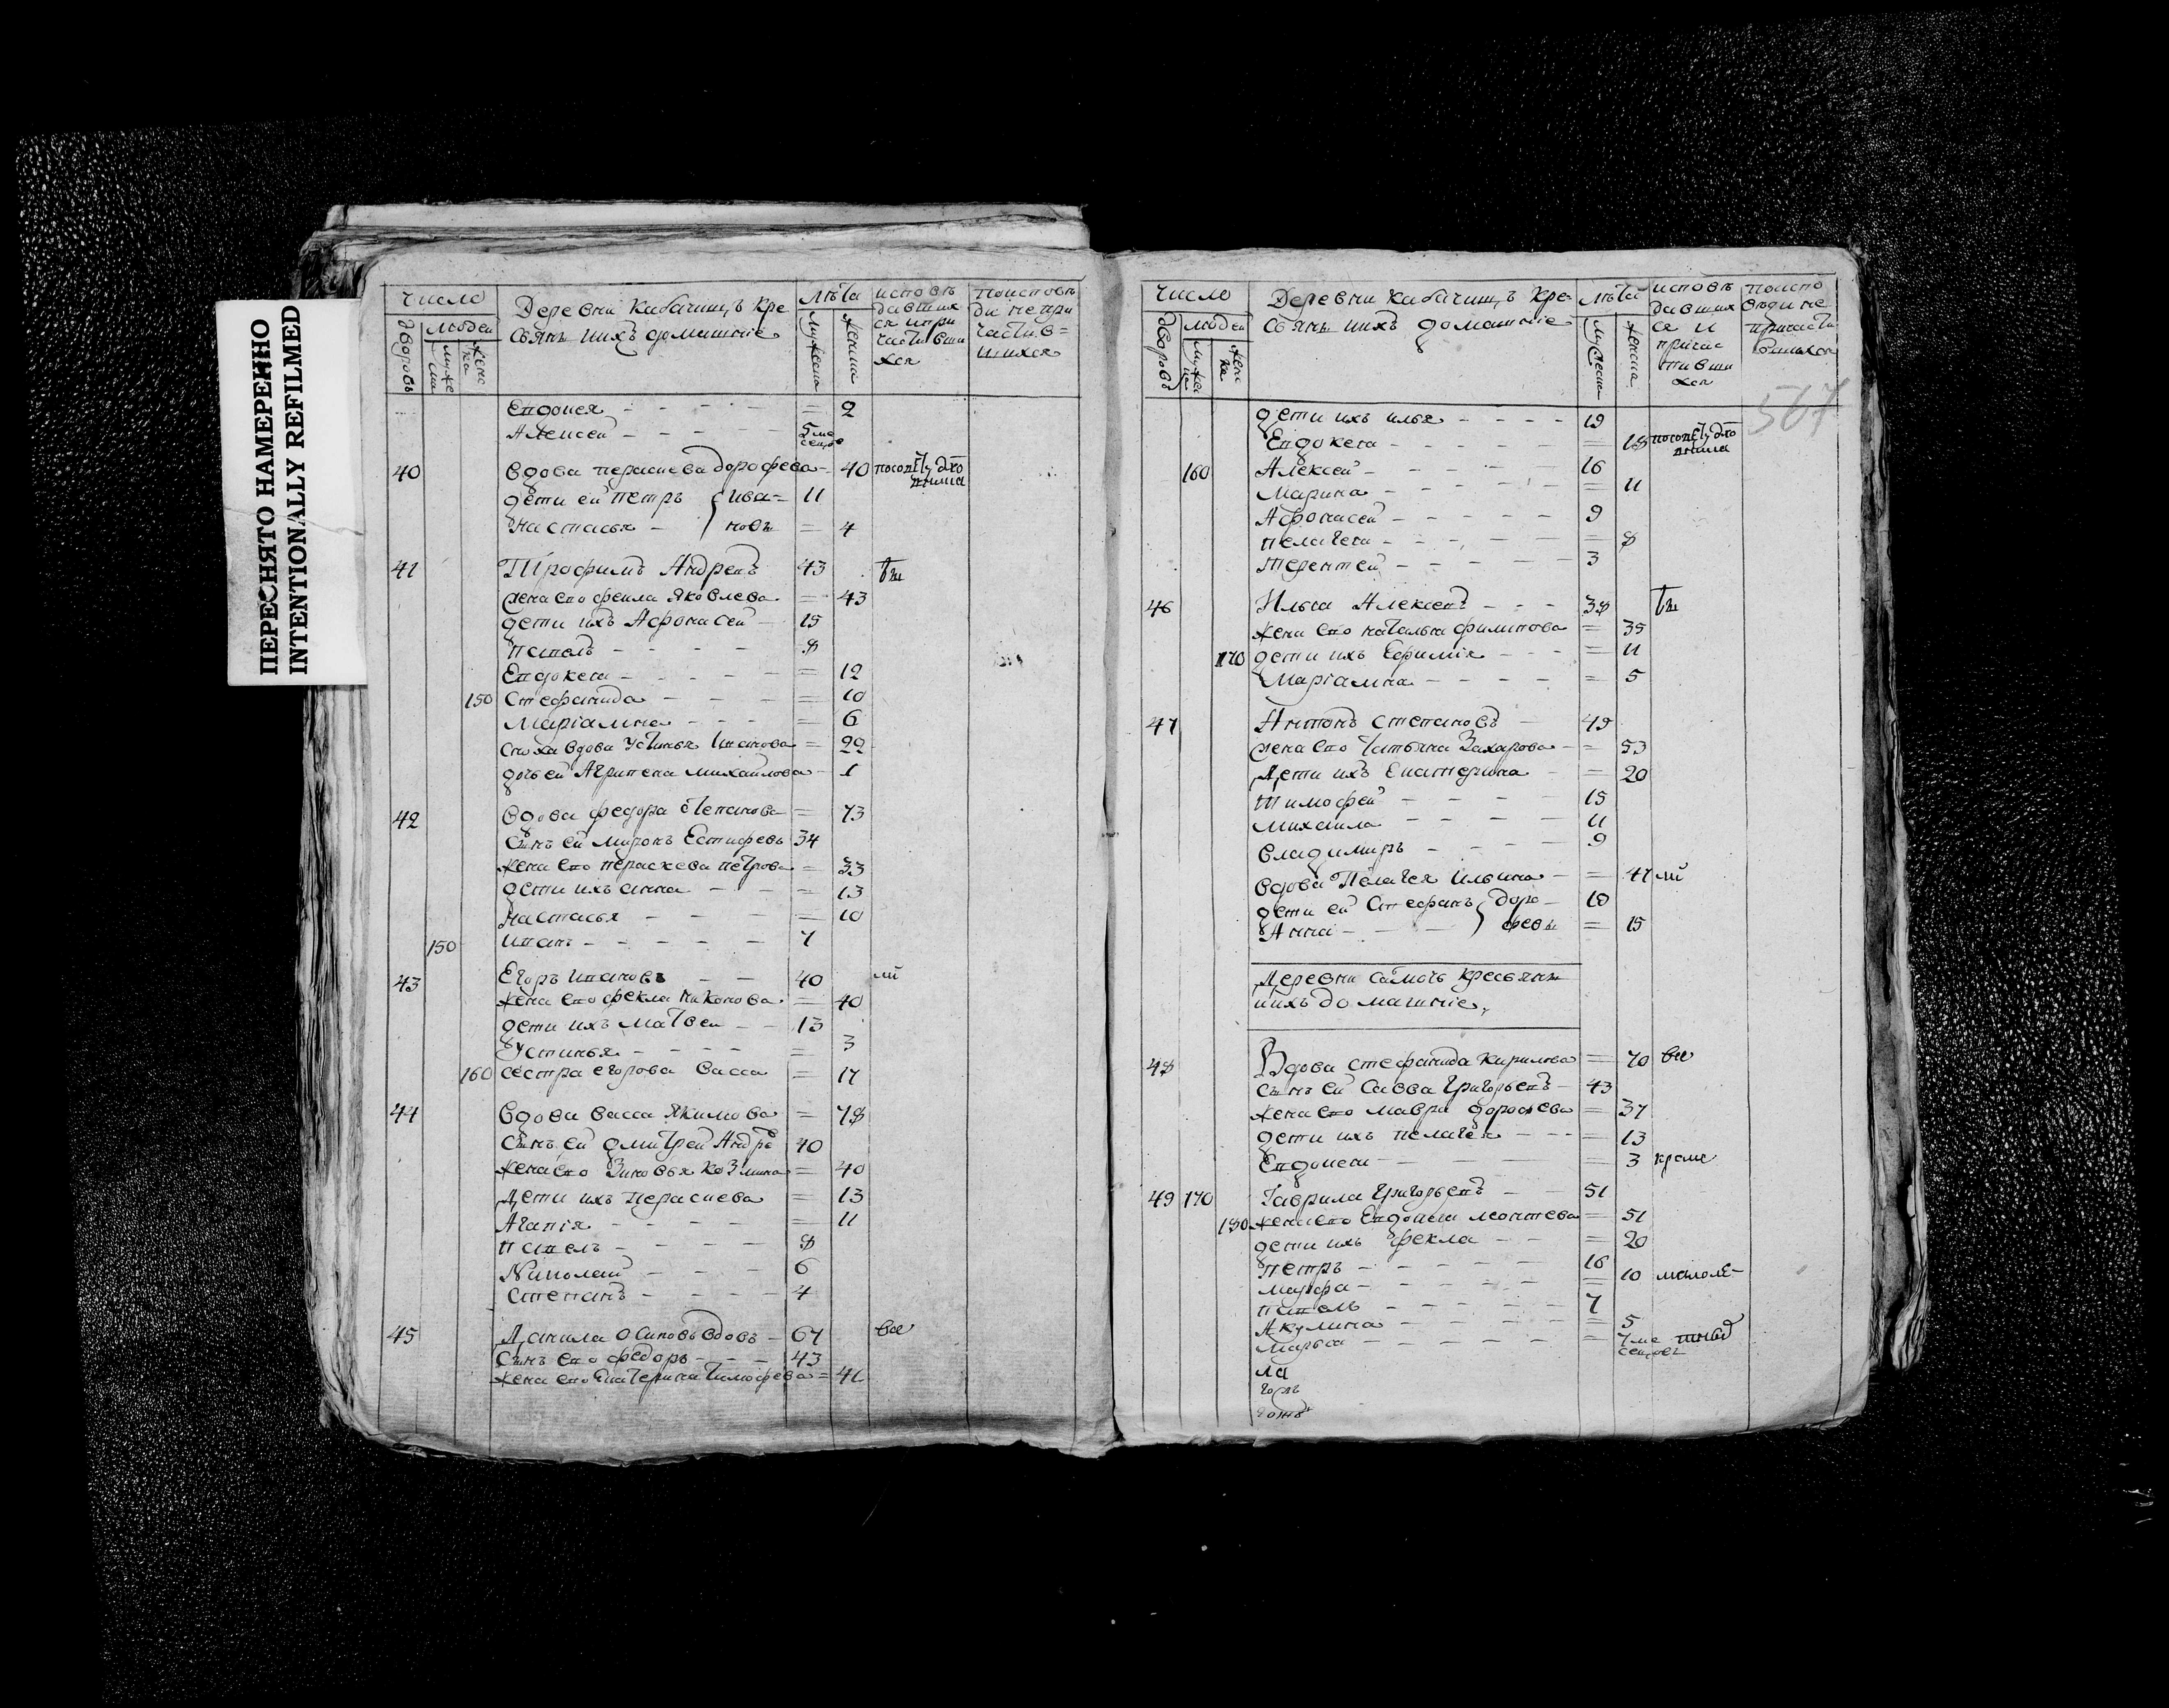 ПЕРЕСНЯТО НАМЕРЕННО
INTENTIONALLY REFILMED
число
дворовъ
людей
муже
ска
женс
ка
Деревни Кабачищъ кре
стьянѣ ихъ домашніе
лѣта
мужеска
женска
исповѣ
давших
ся и при
частивши
хся
поисповѣ
ди непри
частив=
шихся
Евдокея 2
Алексей 5 ме
сецов
40 вдова пераскева дорофева 40
дети ей петръ ива= 11
настасья новы 4
41 Трофимъ Андреевъ 43
жена ево фекла Яковлева 43
дети ихъ Афонасей 15
павелъ 8
Евдокея 12
150 Стефанида 10
Маріамна 6
сноха вдова Устинья Иванова 22
дочь ей Агрипена михайлова 1
42 вдова федора степанова 73
сынъ ей миронъ Естифеевъ 34
жена ево пераскева петрова 33
дети ихъ анна 13
настасья 10
150 иванъ 7
43 Егоръ ивановъ 40
жена ево фекла никонова 40
дети ихъ матвей 13
устинья 3
160 сестра егорова васса 17
44 вдова васса якимова 78
сынъ ей дмитрей Андре 40
жена ево Зиновья козмина 40
Дети ихъ пераскева 13
Агапія 11
павелъ 8
Николай 6
степанъ 4
45 Данила осиповъ вдовъ 67 все
сынъ ево федоръ 43
жена ево Екатерина тимофева 41
число
дворовъ
людей
женс
ка
Деревни Кабачищъ кре
стьянѣ ихъ домашніе
лѣта
мужеска
женска
исповѣ
давших
ся и
причас
тивши
хся
поиспо
вѣди не
причасти
вшихся
567
дети ихъ илья 19
Евдокея 18
160 Алексей 16
Марина 11
Афонасей 9
пелагея 8
терентей 3
46 Илья Алексеевъ 38
жена ево наталья филипова 35
170 дети ихъ Ефимія 11
Маріамна 5
47 Антонъ степановъ 49
жена ево татьяна Захарова 53
Дети ихъ Екатерина 20
Тимофей 15
михаила 11
владимиръ 9
вдова Пелагея ильина 47
дети ей Стефанъ доро 18
Анна февы 15
Деревни самочь кресьянѣ
иихъ домашніе
48 Вдова стефанида кирилова 70 все
сынъ ей савва григорьевъ 43
жена ево мавра дорофева 37
дети ихъ пелагея 13
Евдокея 3 кроме
49 170 Гаврила григорьевъ 51
180 жена ево Евдокея леонтева 51
дети ихъ фекла 20
петръ 16
марфа 10 малоле-
павелъ 7
Акулина 5
марья 7 ме
сецовъ